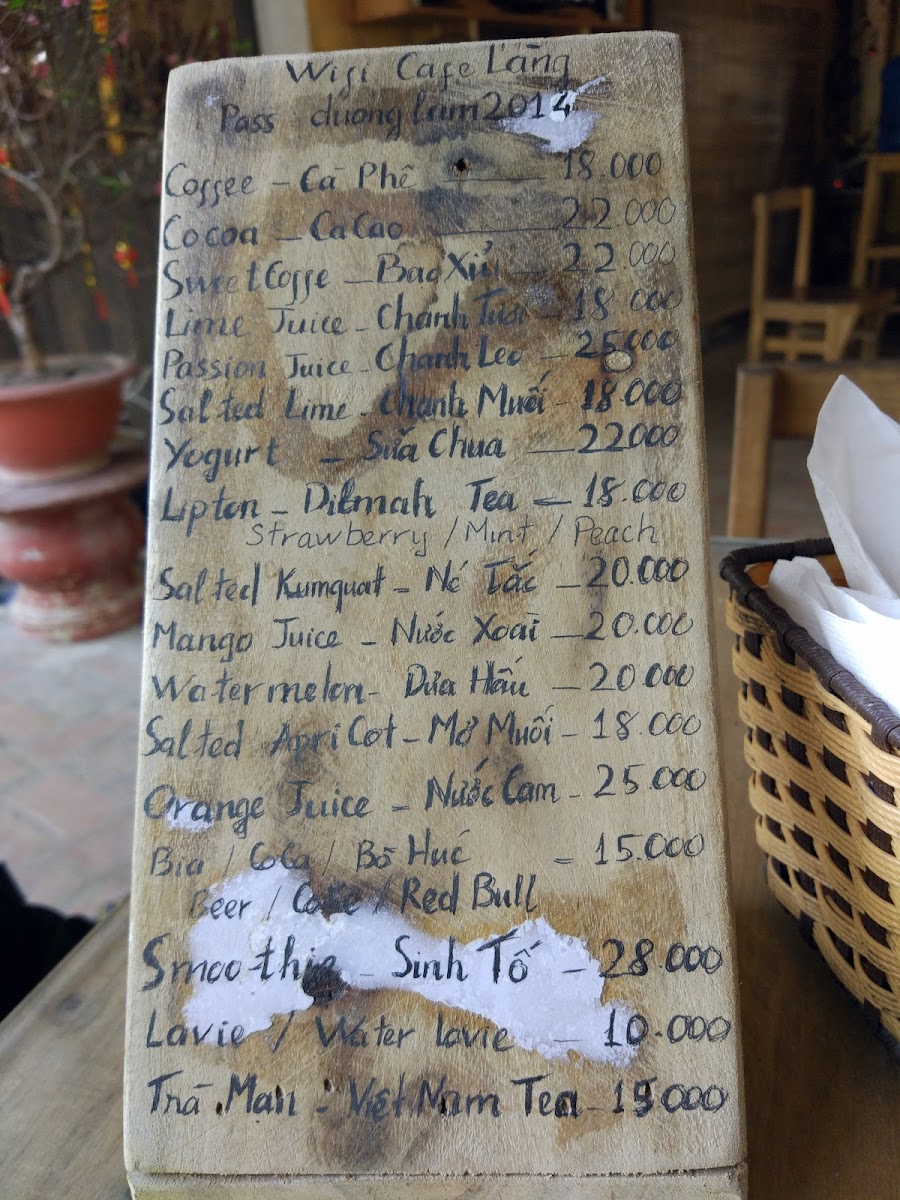 Wifi Cafe Làng
Pass duonglam2014
Coffee - Cà Phê 18.000
Cocoa - CaCao 22.000
Sweet Coffe - Bạc Xỉu - 22.000
Lime Juice - Chanh Tươi - 18.000
Passion Juice - Chanh Leo - 25.000
Salted Lime - Chanh Muối - 18.000
Yogurt - Sữa Chua - 22000
Lipton - Dilmah Tea - 18.000
Strawberry / Mint / Peach
Salted Kumquat - Nc Tắc - 20.000
Mango Juice - Nước Xoài - 20.000
Watermelon - Dưa Hấu - 20.000
Salted Apricot - Mơ Muối - 18.000
Orange Juice - Nước Cam - 25.000
Bia / CoCa / Bò Húc - 15.000
Beer / Coke / Red Bull
Smoothie - Sinh Tố - 28.000
Lavie / Water lavie - 10.000
Trà Mạn - Việt Nam Tea - 15000